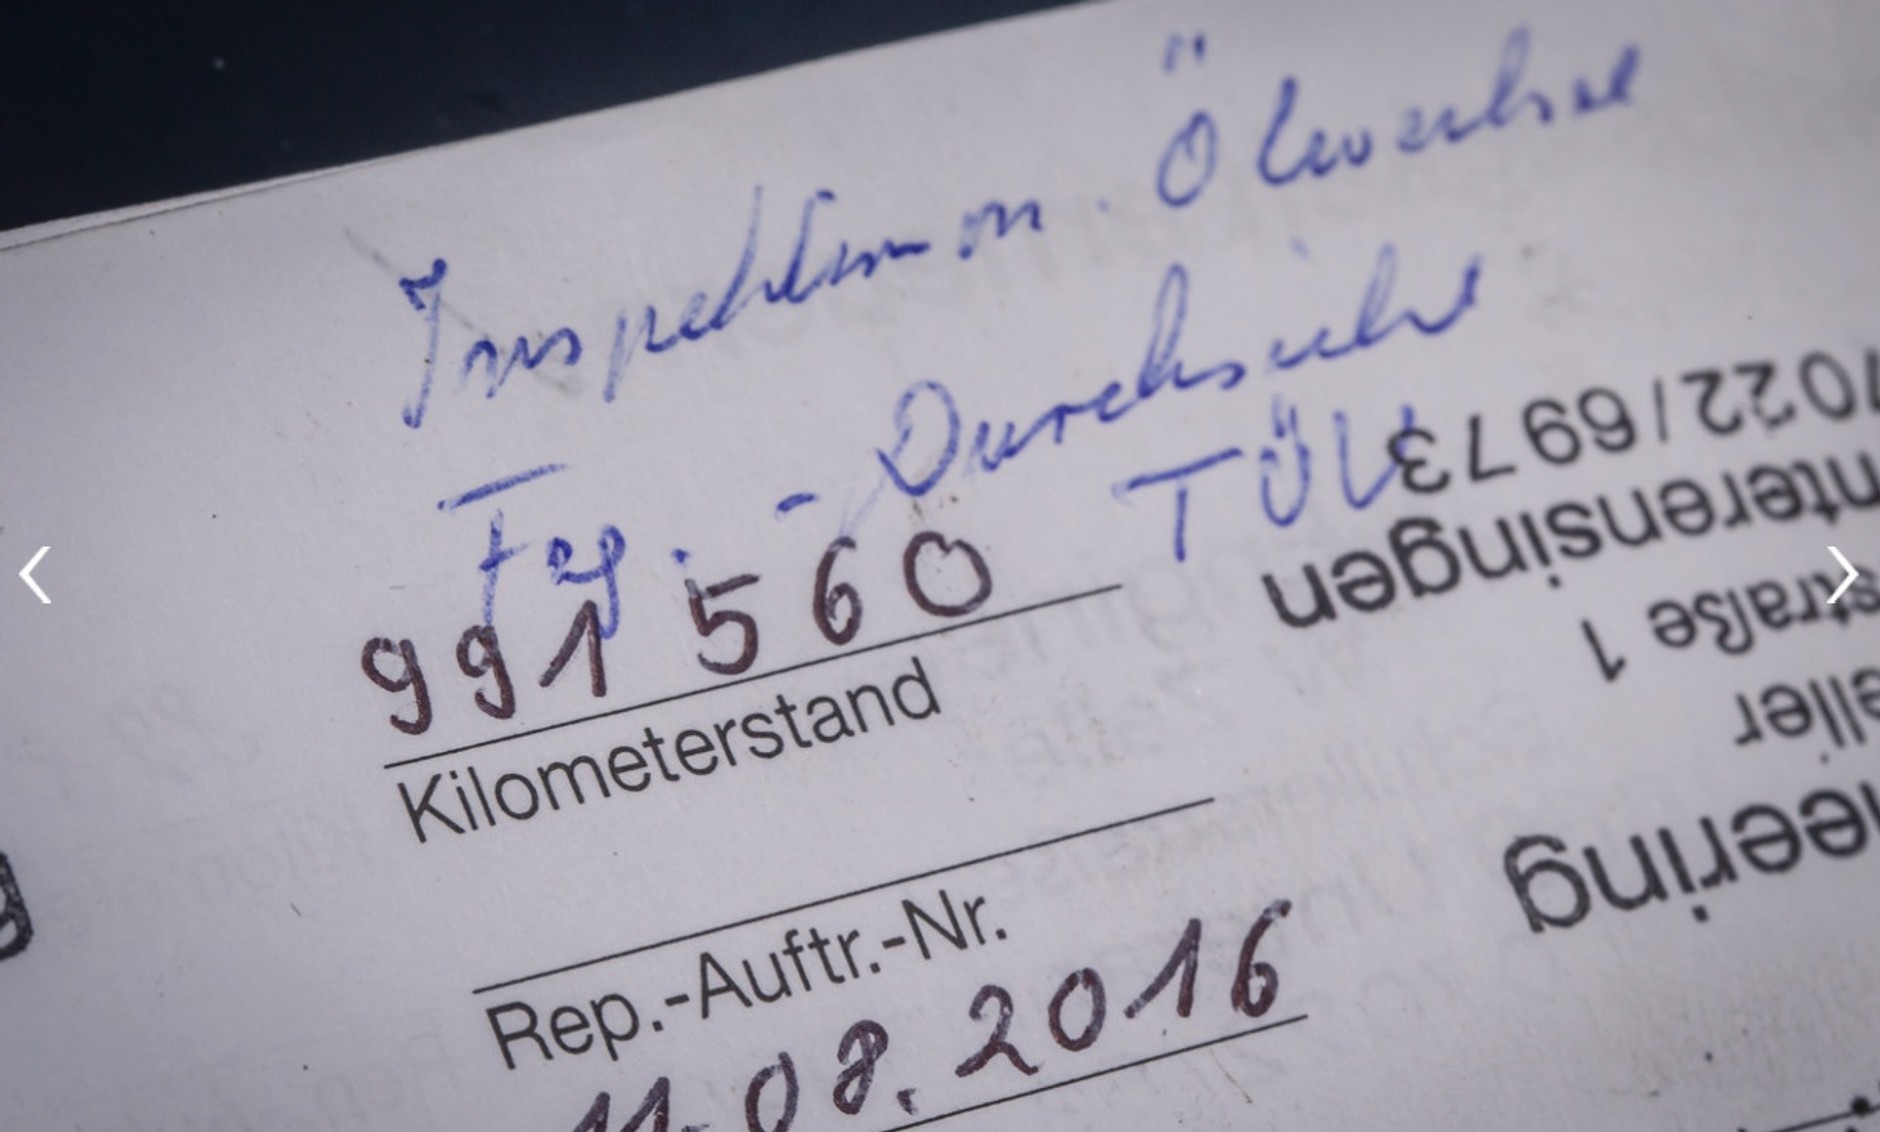 Inspektion m. Ölwechsel
Fzg. - Durchsicht
TÜV
991560
Kilometerstand
Rep.-Auftr.-Nr.
11.08.2016
7022/6973
nterensingen
straße 1
eller
eering